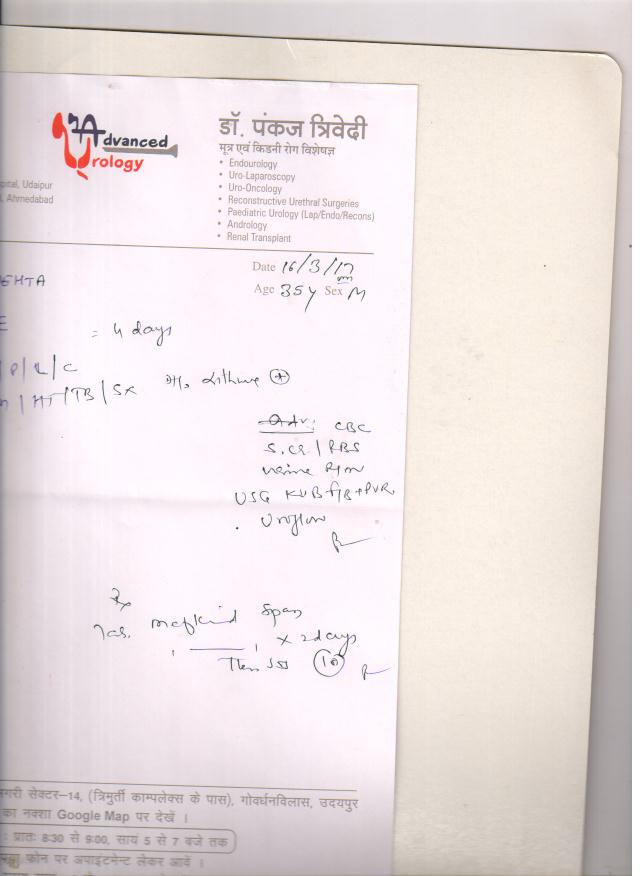 Advanced
Urology
डॉ. पंकज त्रिवेदी
मूत्र एवं किडनी रोग विशेषज्ञ
• Endourology
• Uro-Laparoscopy
• Uro-Oncology
• Reconstructive Urethral Surgeries
• Paediatric Urology (Lap/Endo/Recons)
• Andrology
• Renal Transplant
pital, Udaipur
l, Ahmedabad
Date 16/3/17
Age 35y Sex M
EHTA
E
= 4 days
| P | L | C
| HT | TB | SX
Adv: CBC
S.Cr / RBS
urine R/m
USG KUB + PVR
Uroflow
Rx
Tab. mefkind Spas
x 2 days
Then SOS 10
गरी सेक्टर–14, (त्रिमुर्ती काम्पलेक्स के पास), गोवर्धनविलास, उदयपुर
का नक्शा Google Map पर देखें ।
: प्रातः 8:30 से 9:00, सायं 5 से 7 बजे तक
फोन पर अपाइंटमेन्ट लेकर आवें ।